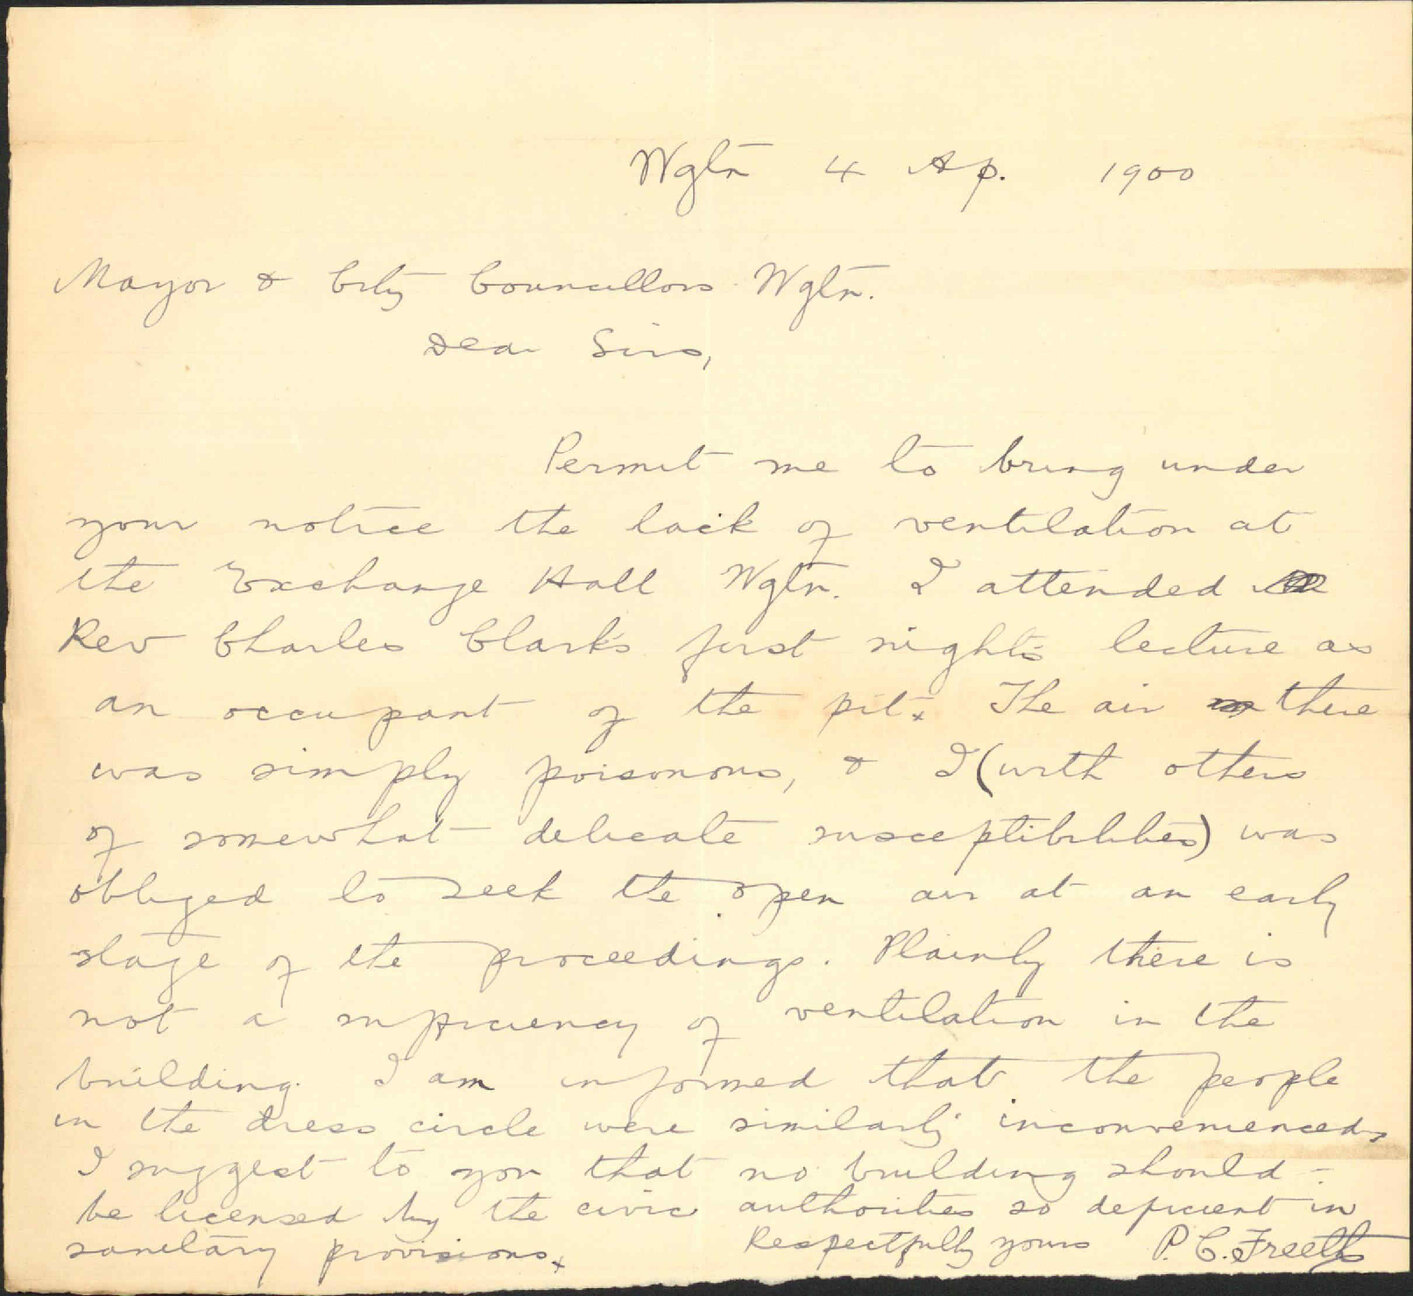 Wgtn 4 Ap. 1900
Mayor & City Councillors Wgtn.
Dear Sirs,
Permit me to bring under
your notice the lack of ventilation at
the Exchange Hall Wgtn. I attended
Rev Charles Clark's first night's lecture as
an occupant of the pit. The air there
was simply poisonous, & I (with others
of somewhat delicate susceptibilities) was
obliged to seek the open air at an early
stage of the proceedings. Plainly there is
not a sufficiency of ventilation in the
building. I am informed that the people
in the dress circle were similarly inconvenienced.
I suggest to you that no building should
be licensed by the civic authorities so deficient in
sanitary provisions.
Respectfully yours P. C. Freeth